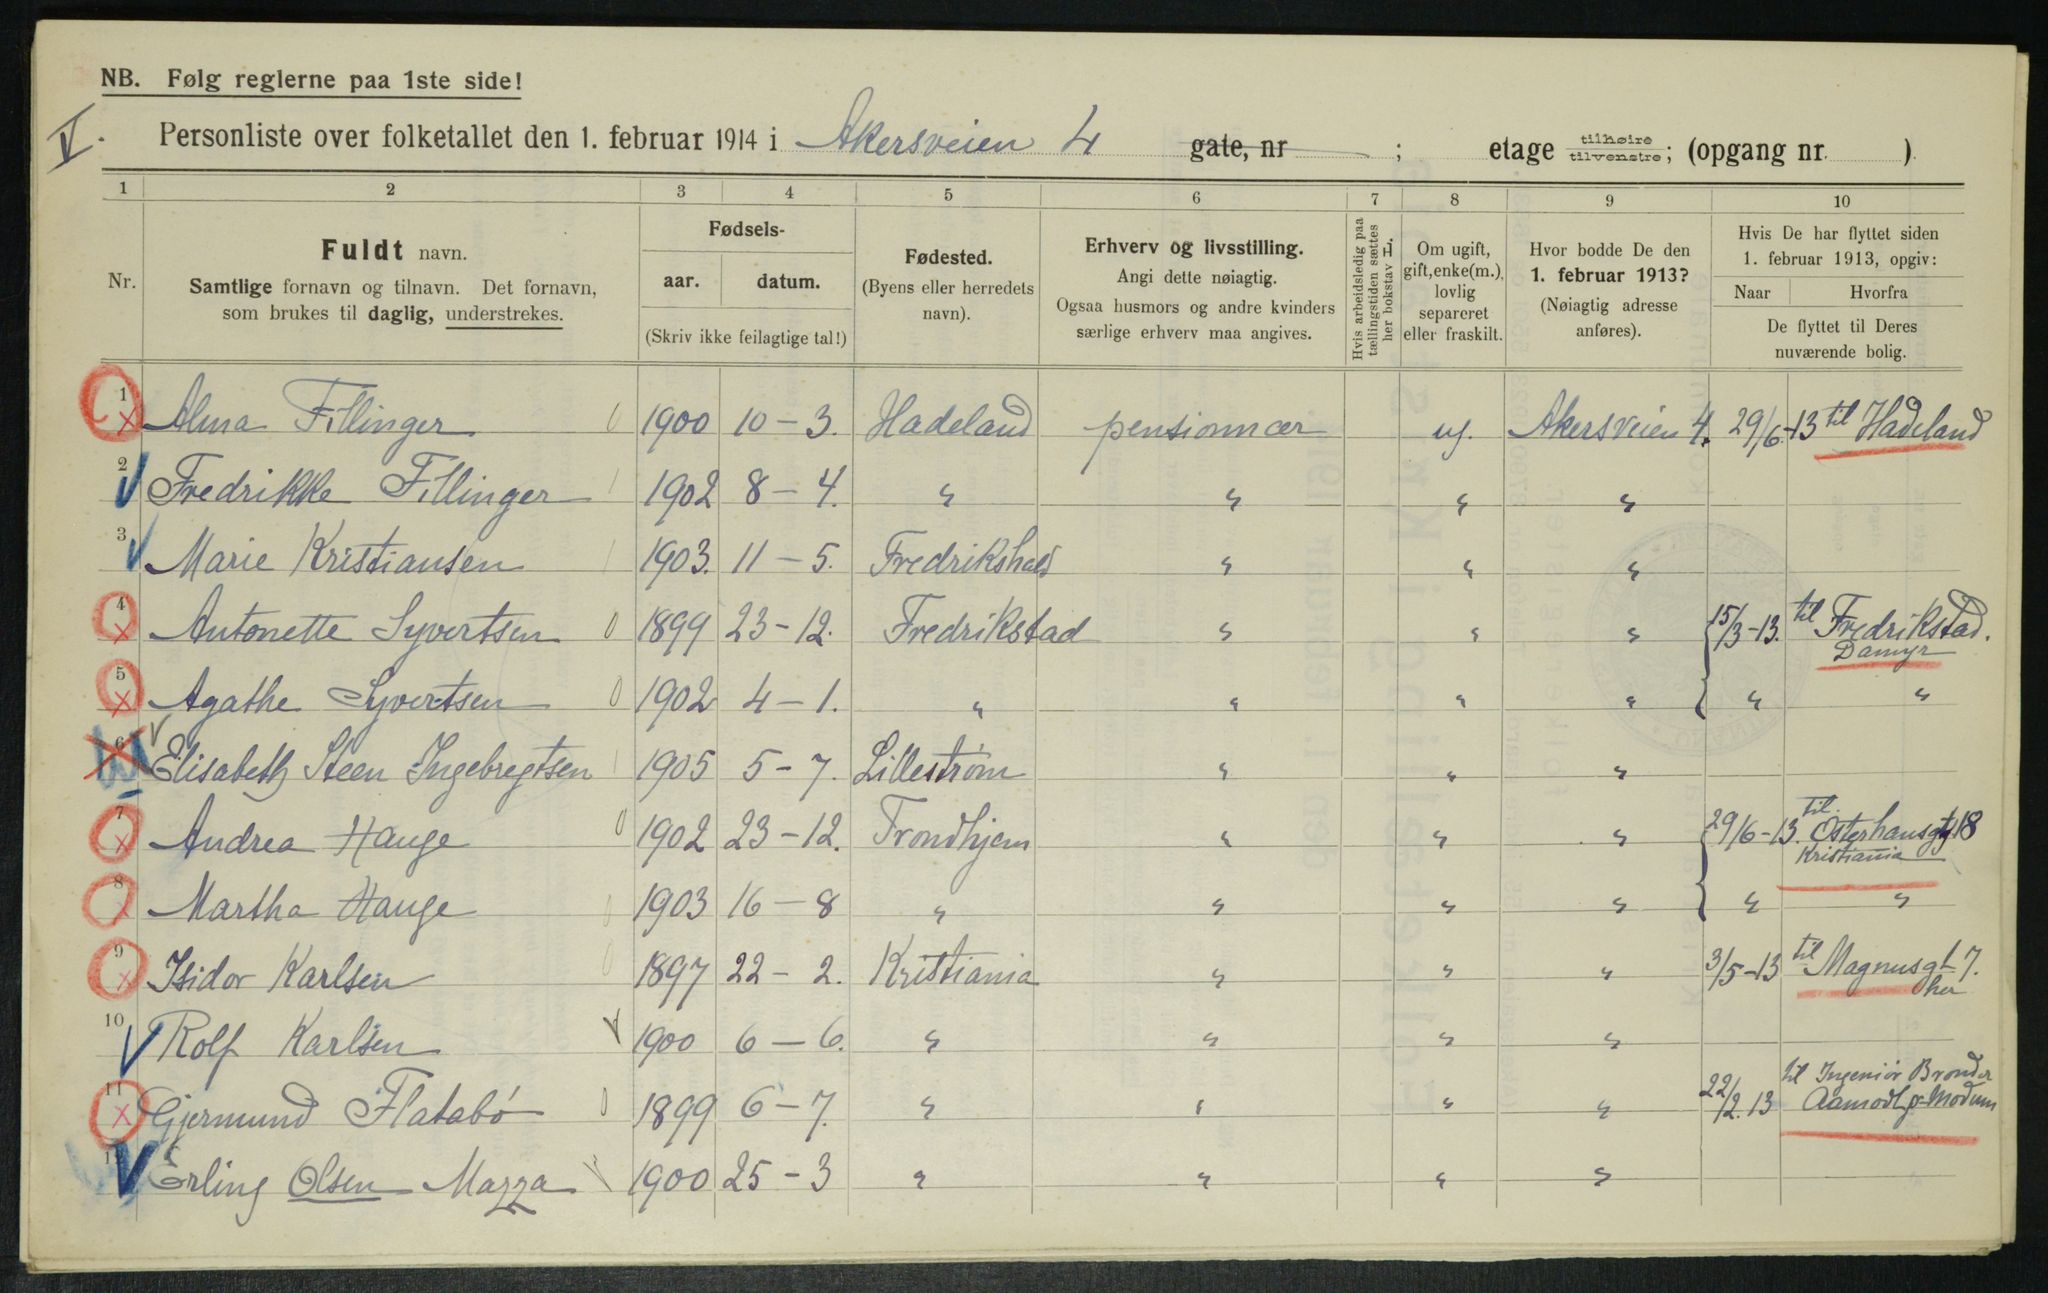 NB. Følg reglerne paa 1ste side!
V.
Personliste over folketallet den 1. februar 1914 i Akersveien 4 gate, nr ; etage tilhøire tilvenstre; (opgang nr. )
1 2 3 4 5 6 7 8 9 10
Nr.
Fuldt navn.
Samtlige fornavn og tilnavn. Det fornavn,
som brukes til daglig, understrekes.
Fødsels-
aar. datum.
(Skriv ikke feilagtige tal!)
Fødested.
(Byens eller herredets
navn).
Erhverv og livsstilling.
Angi dette nøiagtig.
Ogsaa husmors og andre kvinders
særlige erhverv maa angives.
Hvis arbeidsledig paa
tællingstiden sættes
her bokstav L
Om ugift,
gift, enke(m.),
lovlig
separeret
eller fraskilt.
Hvor bodde De den
1. februar 1913?
(Nøiagtig adresse
anføres).
Hvis De har flyttet siden
1. februar 1913, opgiv:
Naar Hvorfra
De flyttet til Deres
nuværende bolig.
1 Alma Fillinger 0 1900 10-3. Hadeland pensionnær ug. Akersveien 4. 29/6-13 til Hadeland
2 Fredrikke Fillinger 1 1902 8-4. " " " "
3 Marie Kristiansen 1 1903. 11-5. Fredrikshald " " "
4 Antonette Syvertsen 0 1899 23-12. Fredrikstad " " " 15/3-13. til Fredrikstad.
Damyr
5 Agathe Syvertsen 0 1902 4-1. " " " " " "
6 Elisabeth Steen Ingebregtsen 1 1905 5-7. Lillestrøm " " "
7 Andrea Hauge 0 1902 23-12. Trondhjem " " " 29/6-13. til Osterhausgt 18
Kristiania
8 Martha Hauge 0 1903 16-8 " " " " " "
9 Isidor Karlsen 0 1897 22-2. Kristiania " " " 3/5-13 til Magnusgt 7.
her
10 Rolf Karlsen 1900 6-6. " " " "
11 Gjermund Flatabø 0 1899 6-7. " " " " 22/2.13 til Ingeniør Bronder
Aamodt pr Modum
12 Erling Olsen Mazza 1900 25-3 " " " "